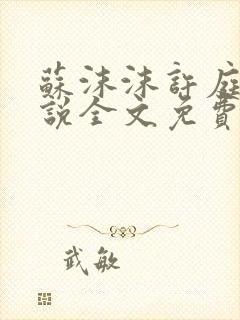 蘇沫沫許庭
說全文免費
武敏